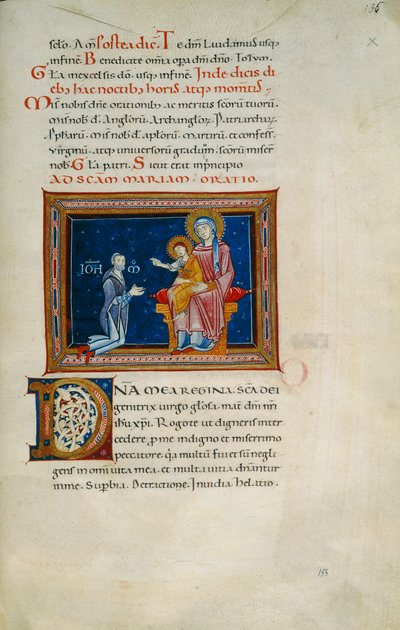 136
sclo. Am Postea dic. Te dm Laudamus usq;
infine. Benedicite omnia opera dni dno. Totum.
Gla inexcelsis do. usq; infine. Inde dicis di
eb; hac noctib; horis atq; momtis.
Mis nobis dne orationib; ac meritis scoru tuoru.
mis nob d. Angloru. Archangloru. Patriarchar.
Ppharu. mis nob d. aploru. martiru. et confess.
virginu. atq; universoru graduu. scoru miser
nob. Gla patri. Sicut erat inprincipio
AD SCAM MARIAM. ORATIO.
IOH M
DNA MEA REGINA. SCA DEI
genitrix virgo glosa. mat dni nri
ihu xpi. Rogo te ut digneris inter
cedere, pro me indigno et miserrimo
peccatore. qa multu fui et su negli
gens in omi vita mea. et multa vitia dnantur
in me. Supbia. Detractione. Invidia. helatio.
155